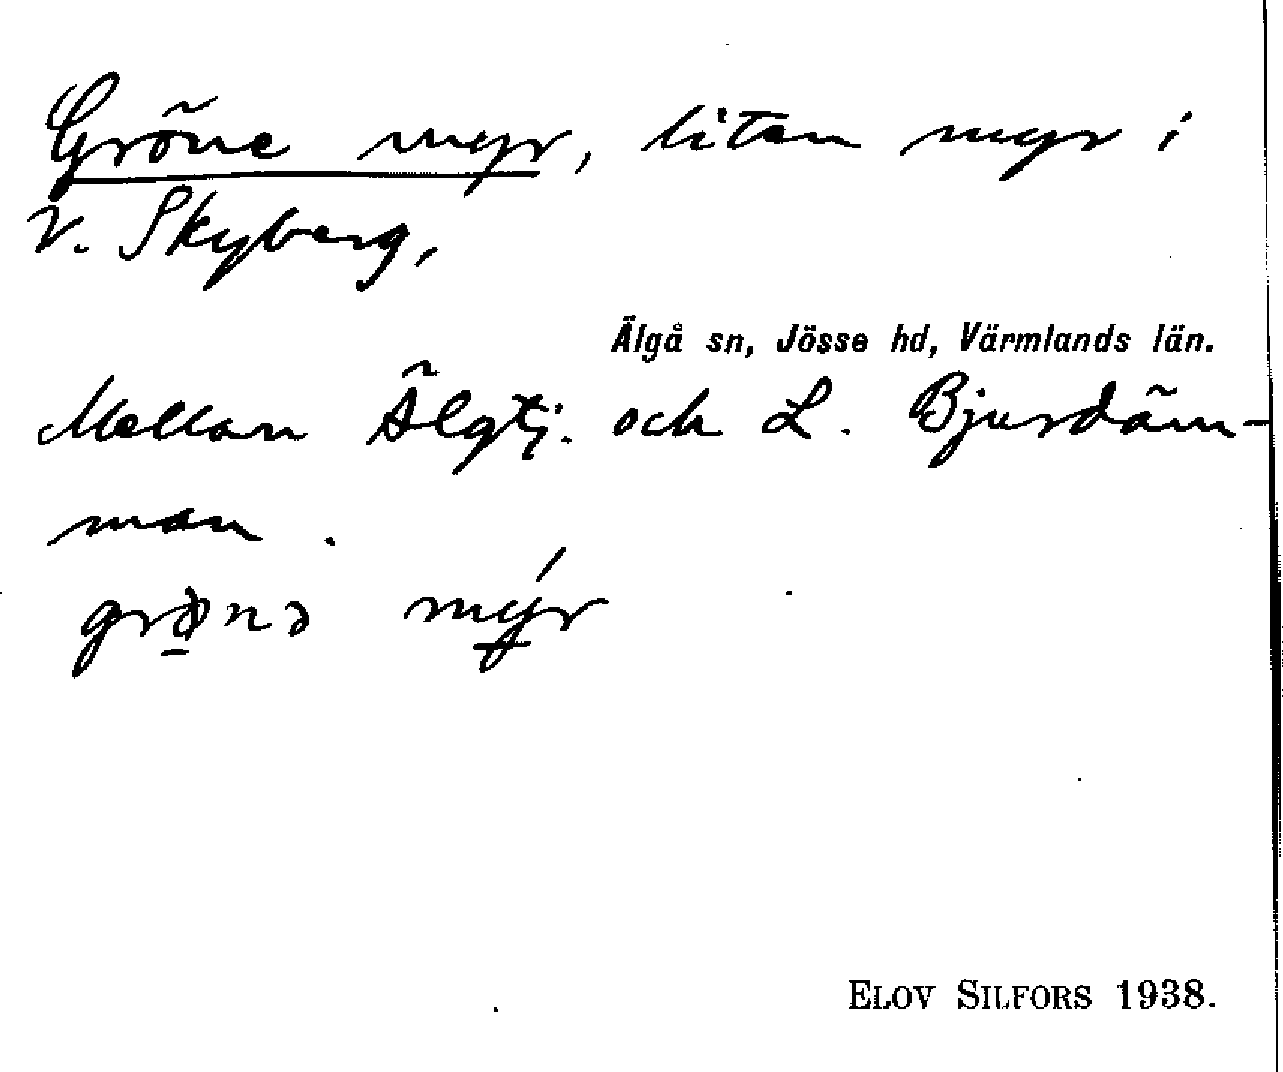 Gröne myr, liten myr i
V. Skyberg,
Älgå sn, Jösse hd, Värmlands län.
Mellan Älgtj. och L. Bjurdäm-
man.
myr
ELOV SILFORS 1938.